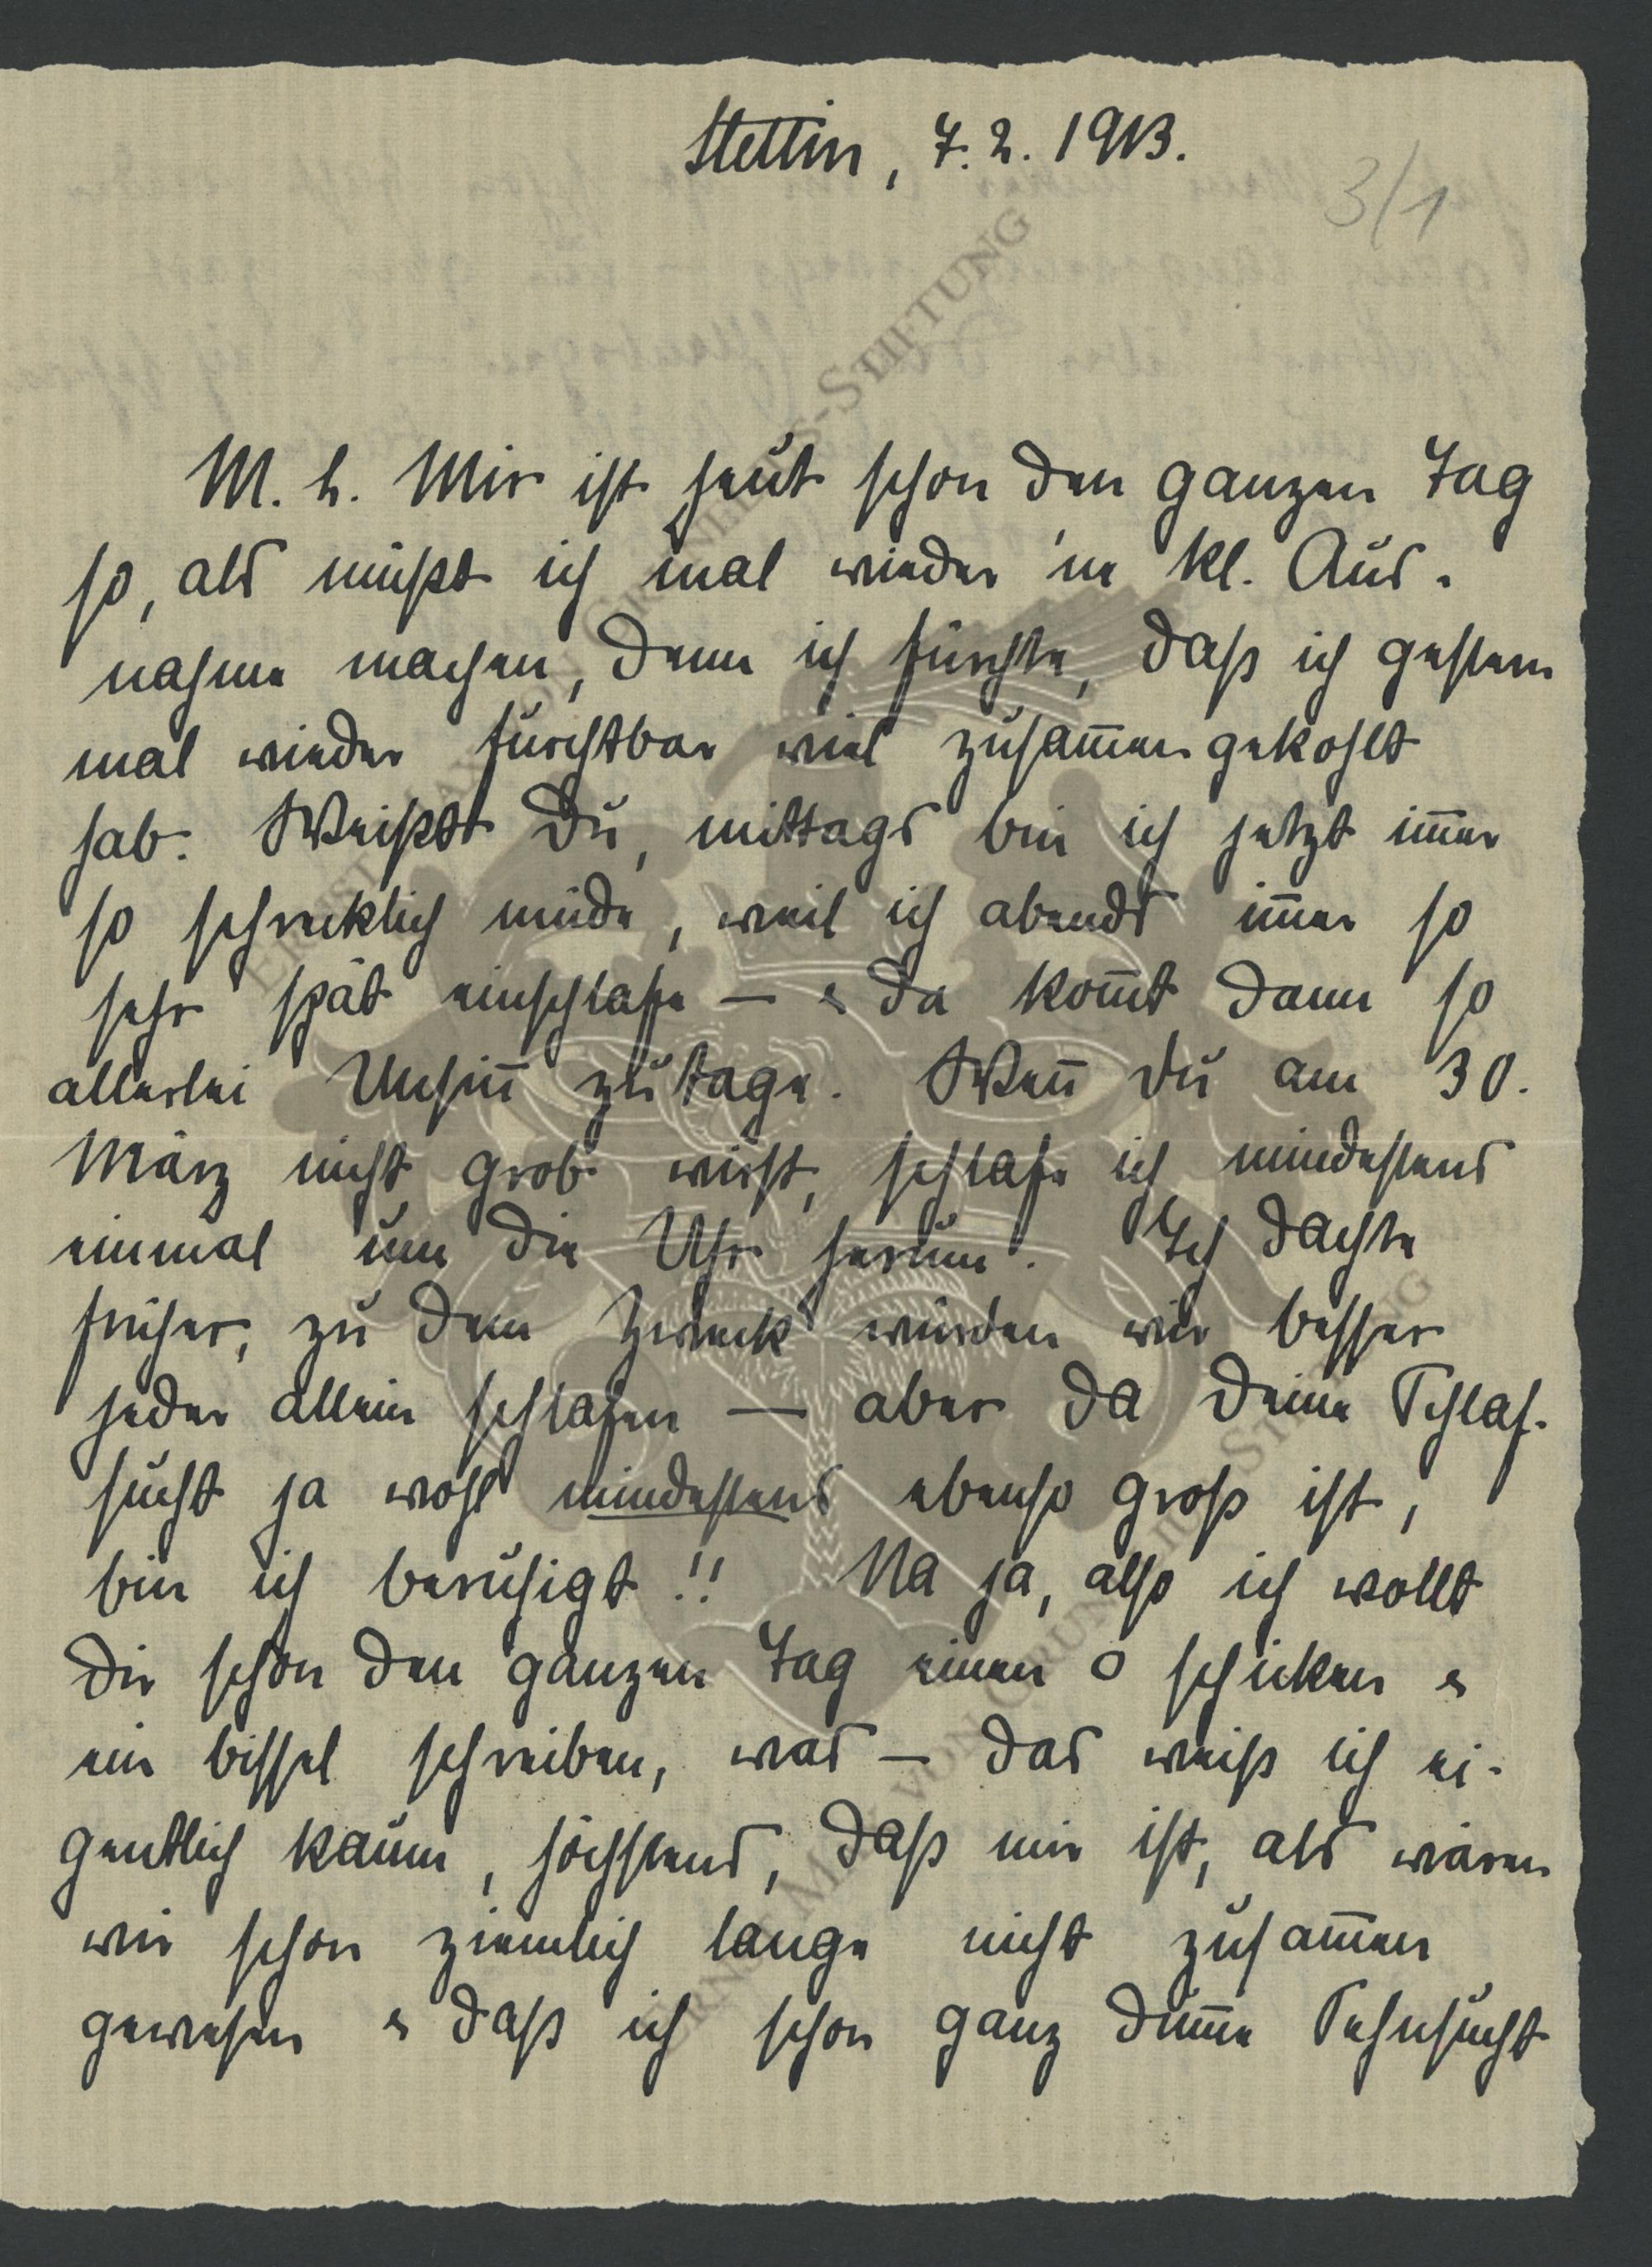 Stettin, 7. 2. 1913.
3/1
M. L. Mir ist heut schon den ganzen Tag
so, als müßt ich mal wieder 'ne kl. Aus-
nahme machen, denn ich fürchte, daß ich gestern
mal wieder furchtbar viel zusam̅en gekohlt
hab. Weißt Du, mittags bin ich jetzt im̅er
so schrecklich müde, weil ich abends im̅er so
sehr spät einschlafe — & da kom̅t dann so
allerlei Unsin̅ zutage. Wen̅ Du am 30.
März nicht grob wirst, schlafe ich mindestens
einmal um die Uhr herum. Ich dachte
früher, zu dem Zweck würden wir besser
jeder allein schlafen — aber da Deine Schlaf-
sucht ja wohl mindestens ebenso groß ist,
bin ich beruhigt!! Na ja, also ich wollt
Dir schon den ganzen Tag einen o schicken &
ein bissel schreiben, was — das weiß ich ei-
gentlich kaum, höchstens, daß mir ist, als wären
wir schon ziemlich lange nicht zusam̅en
gewesen & daß ich schon ganz dum̅e Sehnsucht
ERNST MAX VON GRUNELIUS-STIFTUNG
ERNST MAX VON GRUNELIUS-STIFTUNG